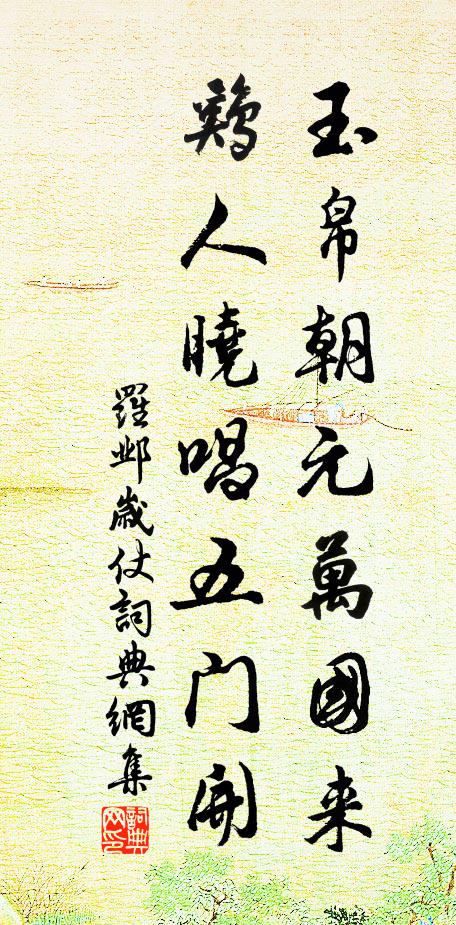 玉帛朝元萬國来
鷄人曉唱五门開
羅邺歲仗詞典網集
詞典网印